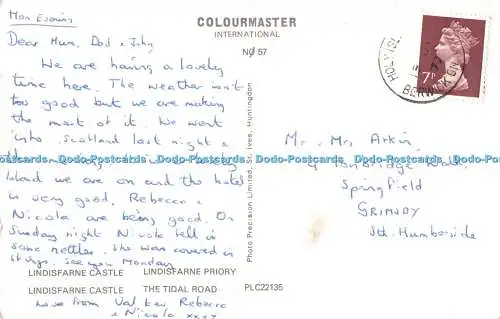 Mon Evening
COLOURMASTER
INTERNATIONAL
Nº 57
Dear Mum, Dad & John
We are having a lovely
time here. The weather isn't
too good but we are making
the most of it. We went
into Scotland last night &
this
Island we are on and the hotel
is very good. Rebecca &
Nicola are being good. On
Sunday night Nicola fell in
some nettles. She was covered in
stings. See you Monday
Love from Val Ker Rebecca
& Nicola xxxx
LINDISFARNE CASTLE LINDISFARNE PRIORY
LINDISFARNE CASTLE THE TIDAL ROAD PLC22135
Photo Precision Limited, St. Ives, Huntingdon
7P
HOLY ISL
BERWICK ON
Mr. Mrs Arkin,
Springfield
GRIMSBY
Sth. Humberside
Dodo-Postcards Dodo-Postcards Dodo-Postcards Dodo-Postcards Dodo-Postcards